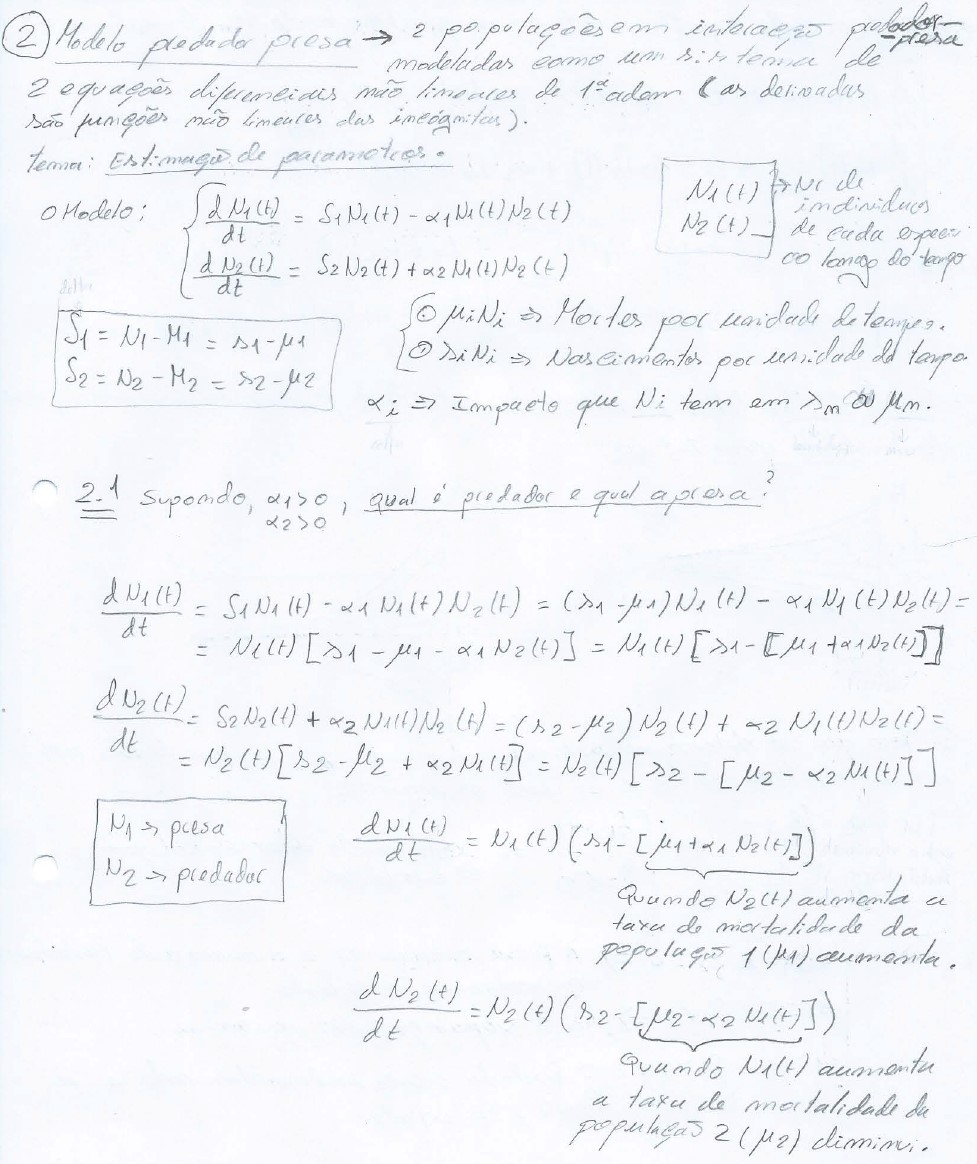 ② Modelo predador presa → 2 populações em interação predador-presa
modeladas como um sistema de
2 equações diferenciais não lineares de 1ª ordem (as derivadas
são funções não lineares das incógnitas).
tema: Estimação de parametros.
O Modelo: dN1(t)/dt = δ1N1(t) - α1N1(t)N2(t)
dN2(t)/dt = δ2N2(t) + α2N1(t)N2(t)
N1(t)
N2(t) → Nº de
indivíduos
de cada espécie
ao longo do tempo
delta
δ1 = N1-M1 = λ1-μ1
δ2 = N2-M2 = λ2-μ2
① μiNi ⇒ Mortes por unidade de tempo.
② λiNi ⇒ Nascimentos por unidade de tempo
αi ⇒ Impacto que Ni tem em λn ou μn.
2.1 Supondo, α1>0, α2>0, qual é predador e qual a presa?
dN1(t)/dt = δ1N1(t) - α1N1(t)N2(t) = (λ1-μ1)N1(t) - α1N1(t)N2(t) =
= N1(t)[λ1 - μ1 - α1N2(t)] = N1(t)[λ1-[μ1+α1N2(t)]]
dN2(t)/dt = δ2N2(t) + α2N1(t)N2(t) = (λ2-μ2)N2(t) + α2N1(t)N2(t) =
= N2(t)[λ2-μ2 + α2N1(t)] = N2(t)[λ2 - [μ2 - α2N1(t)]]
N1 → presa
N2 → predador
dN1(t)/dt = N1(t)(λ1-[μ1+α1N2(t)])
Quando N2(t) aumenta a
taxa de mortalidade da
população 1 (μ1) aumenta.
dN2(t)/dt = N2(t)(λ2-[μ2-α2N1(t)])
Quando N1(t) aumenta
a taxa de mortalidade da
população 2 (μ2) diminui.